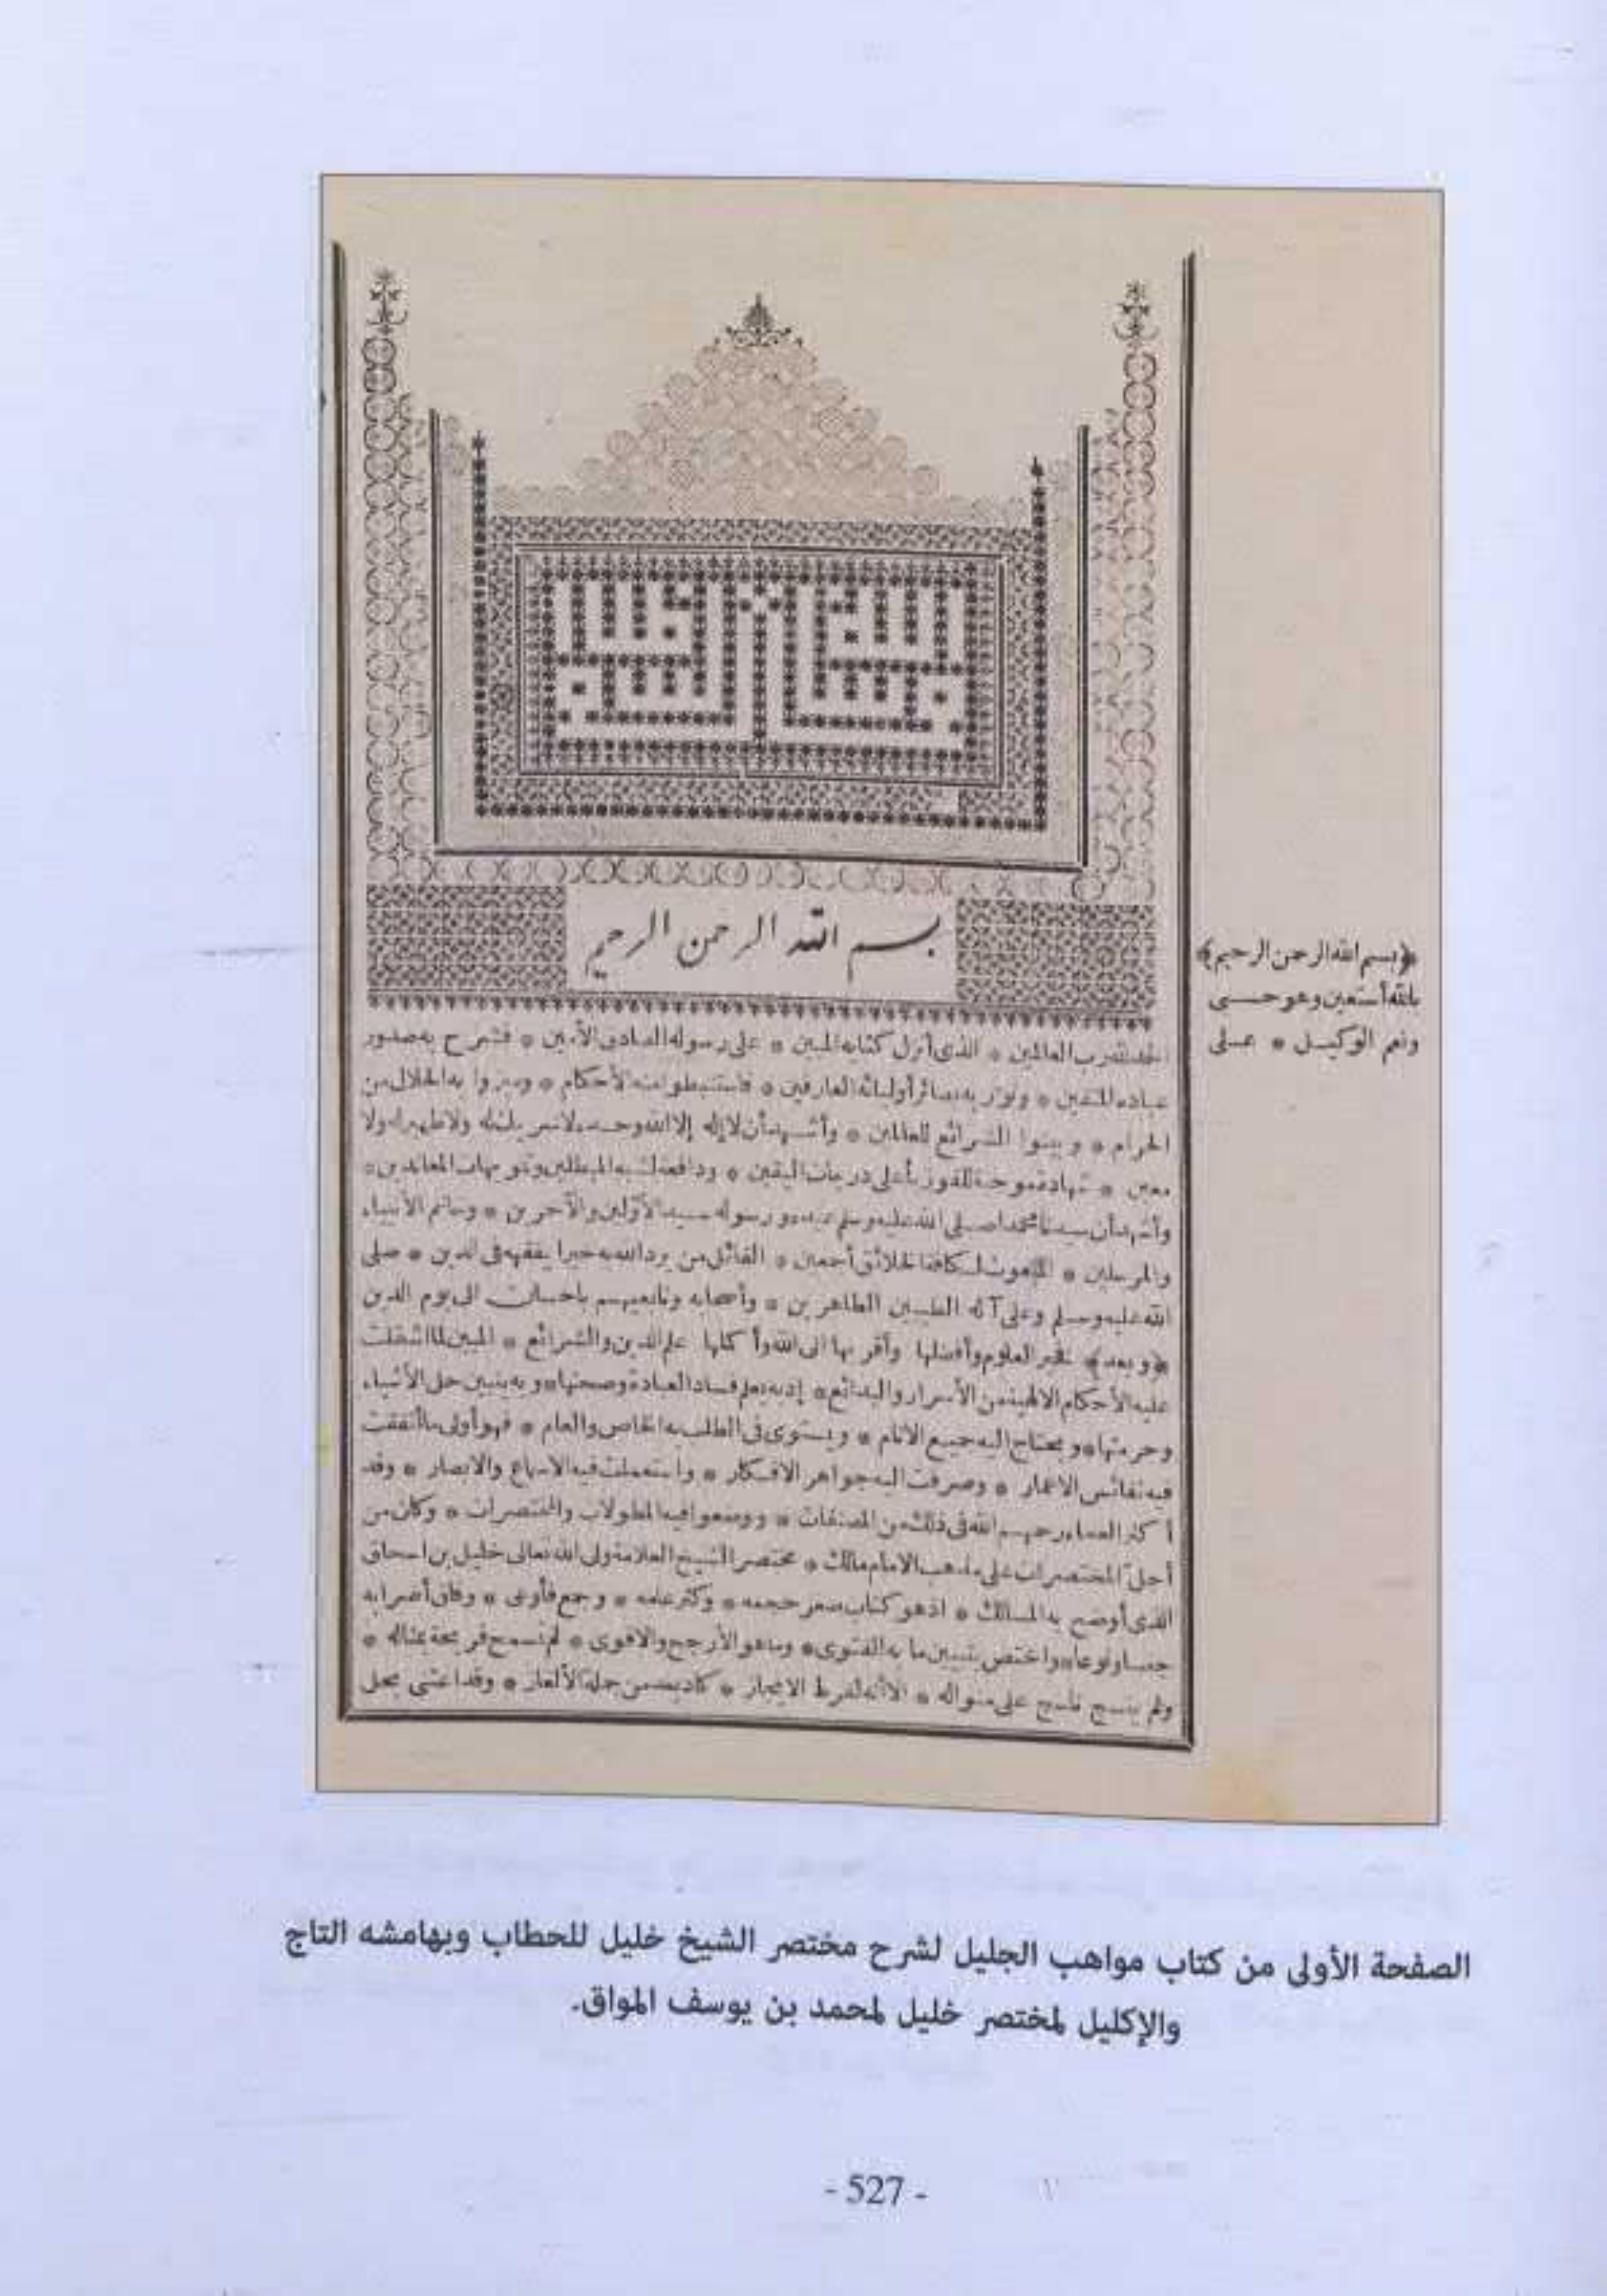 بسم الله الرحمن الرحيم
﴿بسم الله الرحمن الرحيم﴾
بالله أستعين وهو حسبى
ونعم الوكيل * صلى
الحمد لله رب العالمين * الذى أنزل كتابه المبين * على رسوله الصادق الأمين * فشرح به صدور
عباده المتقين * ونور به بصائر أوليائه العارفين * فاستنبطوا منه الأحكام * وميزوا به الحلال من
الحرام * وبينوا الشرائع للعالمين * وأشهد أن لا إله إلا الله وحده لا شريك له ولا ظهير له ولا
معين * شهادة موجبة للفوز بأعلى درجات اليقين * ودافعة لشبه المبطلين وتمويهات المعاندين *
وأشهد أن سيدنا محمدا صلى الله عليه وسلم عبده ورسوله سيد الأولين والآخرين * وخاتم الأنبياء
والمرسلين * المبعوث لكافة الخلائق أجمعين * القائل من يرد الله به خيرا يفقهه فى الدين * صلى
الله عليه وسلم وعلى آله الطيبين الطاهرين * وأصحابه وتابعيهم باحسان الى يوم الدين
﴿وبعد﴾ فخير العلوم وأفضلها وأقربها الى الله وأكملها علم الدين والشرائع * المبين لما اشتملت
عليه الأحكام الالهية من الأسرار والبدائع * إذ به يعلم فساد العبادة وصحتها * وبه يتبين حل الأشياء
وحرمتها * ويحتاج اليه جميع الانام * ويستوى فى الطلب به الخاص والعام * فهو أولى ما أنفقت
فيه نفائس الاعمار * وصرفت اليه جواهر الافكار * واستعملت فيه الاسماع والابصار * وقد
أكثر العلماء رحمهم الله فى ذلك من المصنفات * ووضعوا فيه المطولات والمختصرات * وكان من
أجل المختصرات على مذهب الامام مالك * مختصر الشيخ العلامة ولى الله تعالى خليل بن اسحاق
الذى أوضح به المسالك * اذ هو كتاب صغر حجمه * وكثر علمه * وجمع فأوعى * وفاق أضرابه
جنسا ونوعا * واختص بتبيين ما به الفتوى * وما هو الأرجح والاقوى * لم تسمح قريحة بمثاله *
ولم ينسج ناسج على منواله * الا أنه لفرط الايجاز * كاد يعد من جملة الألغاز * وقد اعتنى بحل
الصفحة الأولى من كتاب مواهب الجليل لشرح مختصر الشيخ خليل للحطاب وبهامشه التاج
والإكليل لمختصر خليل لمحمد بن يوسف المواق.
- 527 -